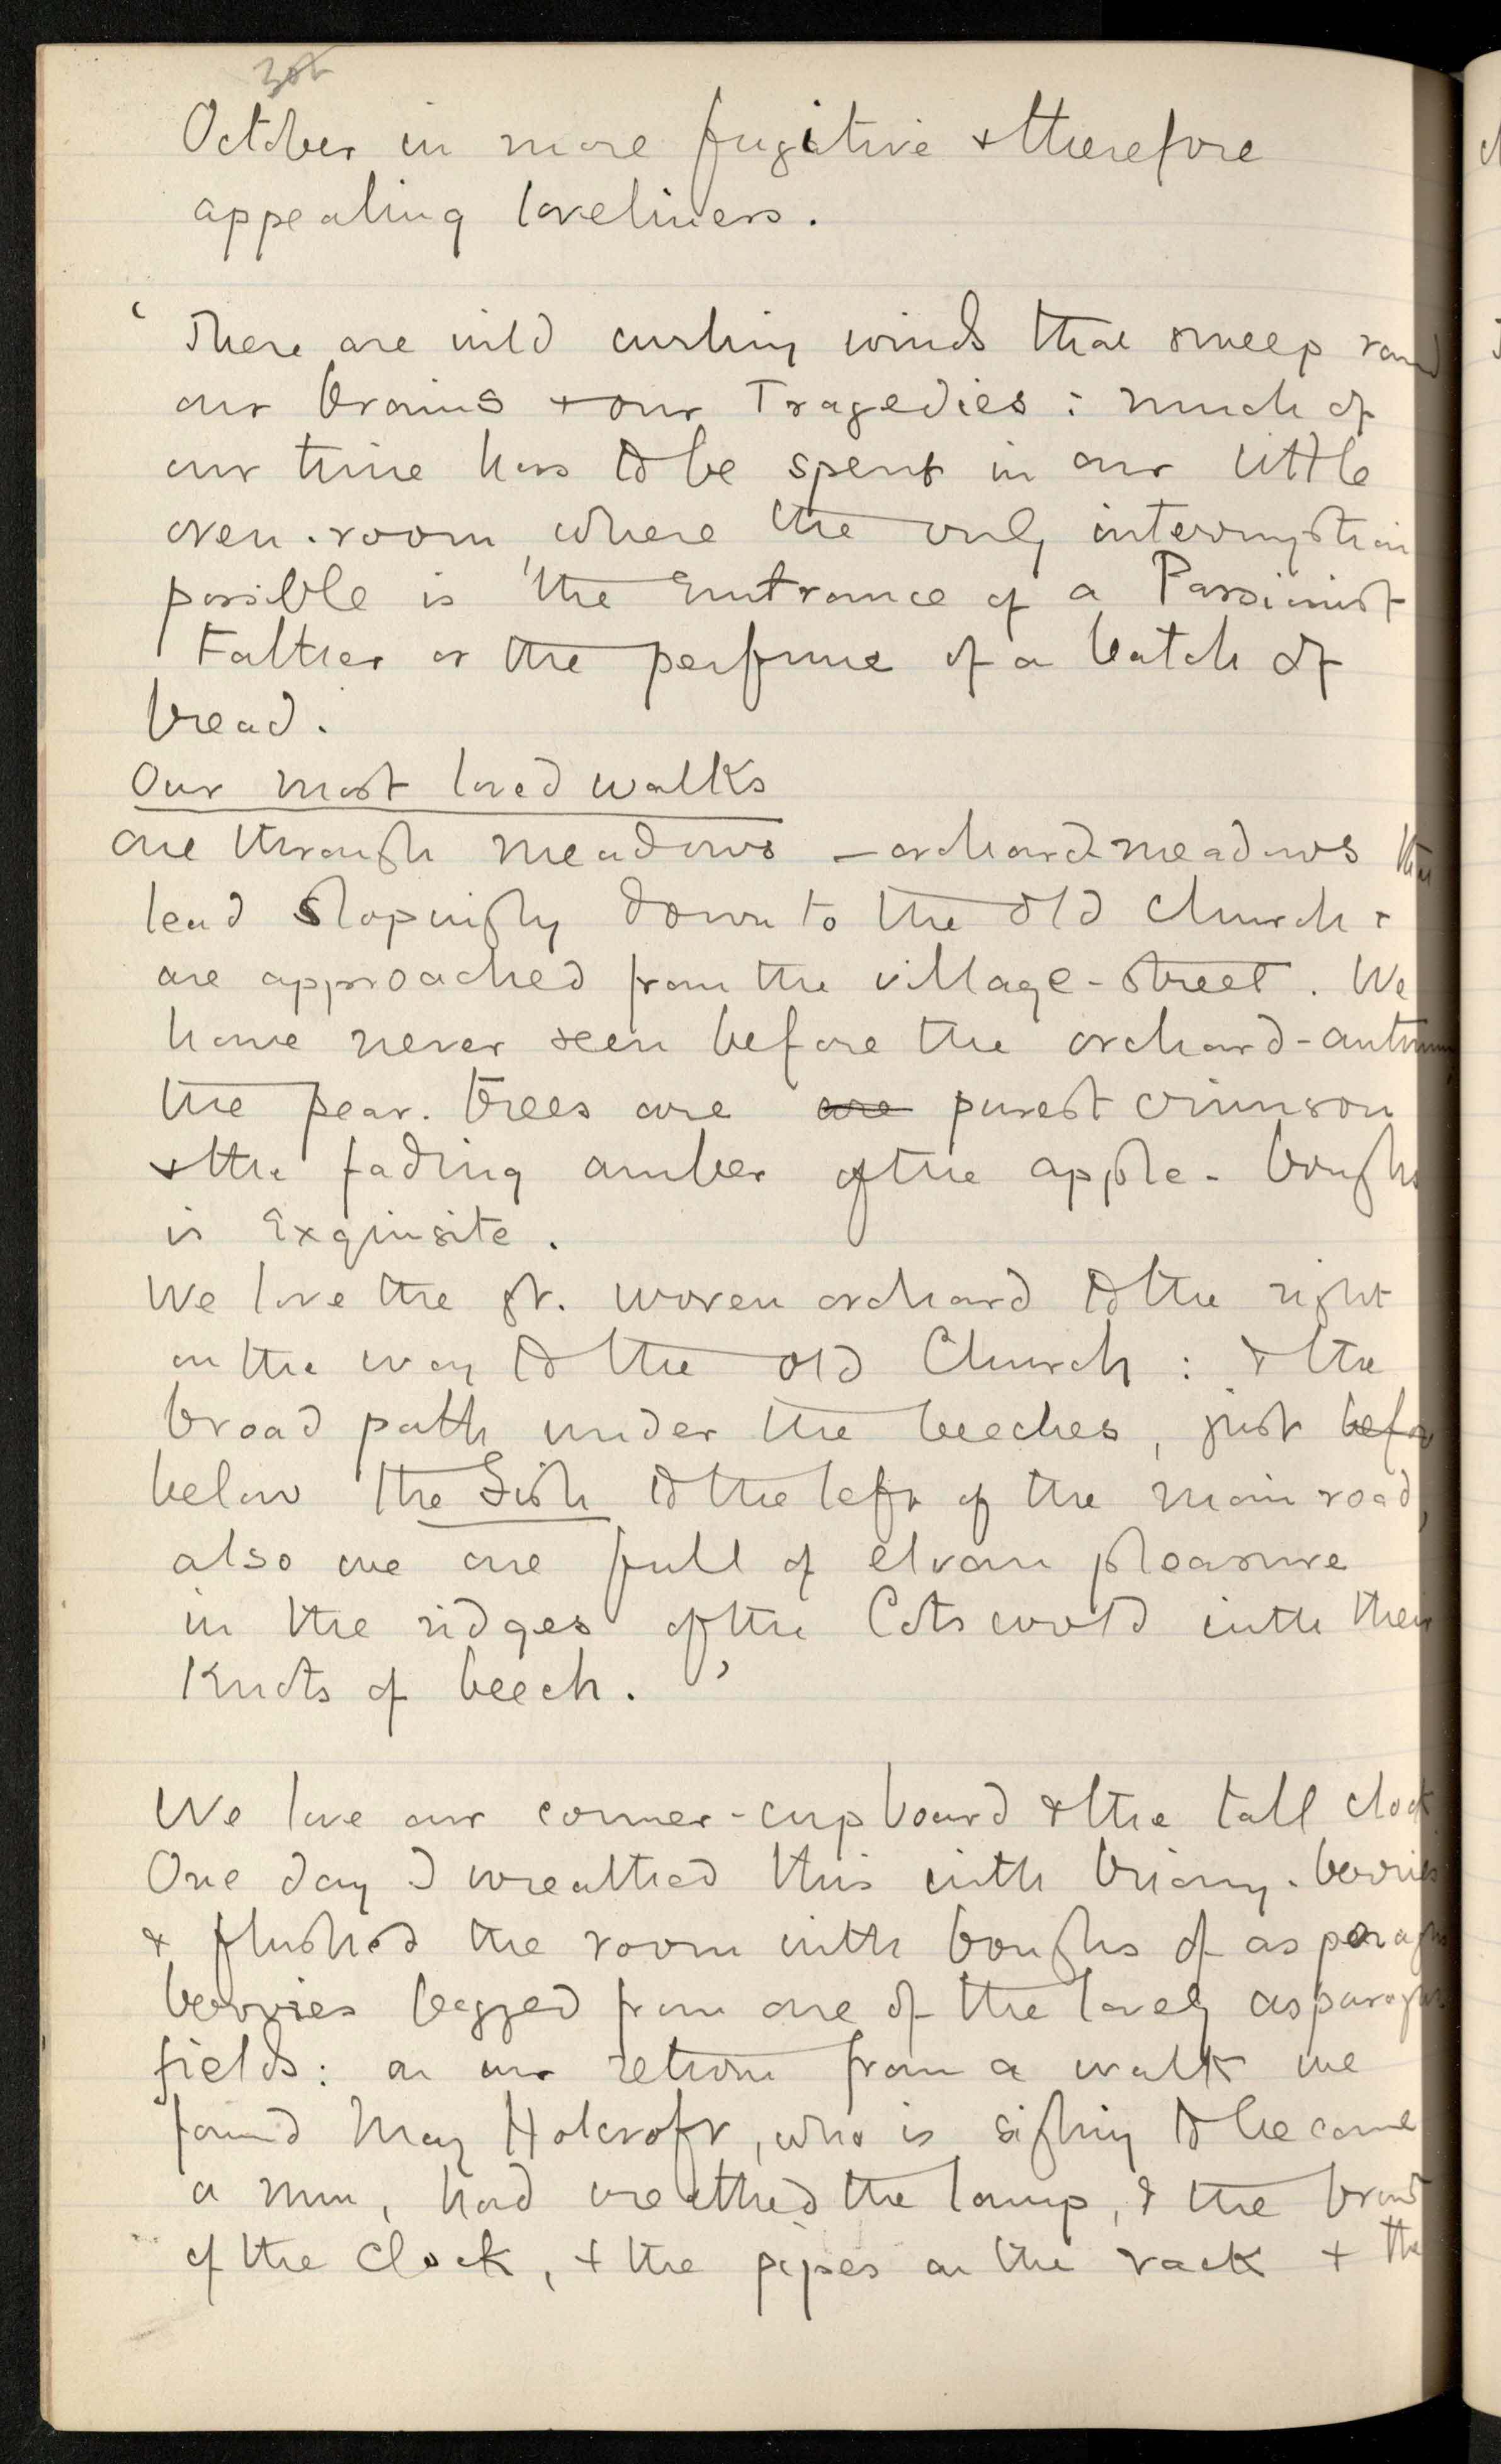 October in more fugitive & therefore
appealing loveliness.
‘ There are wild curling winds that sweep round
our brains & our Tragedies : much of
our time has to be spent in our little
oven-room, where the only interruption
possible is the Entrance of a Passionist
Father or the perfume of a batch of
bread.
Our most loved walks
are through meadows – orchard-meadows that
lead slopingly down to the old church &
are approached from the village-street. We
have never seen before the orchard-autumn,
the pear-trees are are purest crimson
& the fading amber of the apple-boughs
is Exquisite.
We love the gt. woven orchard to the right
on the way to the old Church : & the
broad path under the beeches, just befor
below the Fish to the left of the main road,
also we are full of elvan pleasure
in the ridges of the Cotswold with their
Knots of beech. ’
We love our corner-cupboard & the tall clock
One day I wreathed this with briony-berries
& flushed the room with boughs of asparagus
berries begged from one of the lovely asparagus
fields: on our return from a walk we
found May Holcroft, who is sighing to become
a nun, had wreathed the lamp, & the
of the Clock, & the pipes on the rack & the